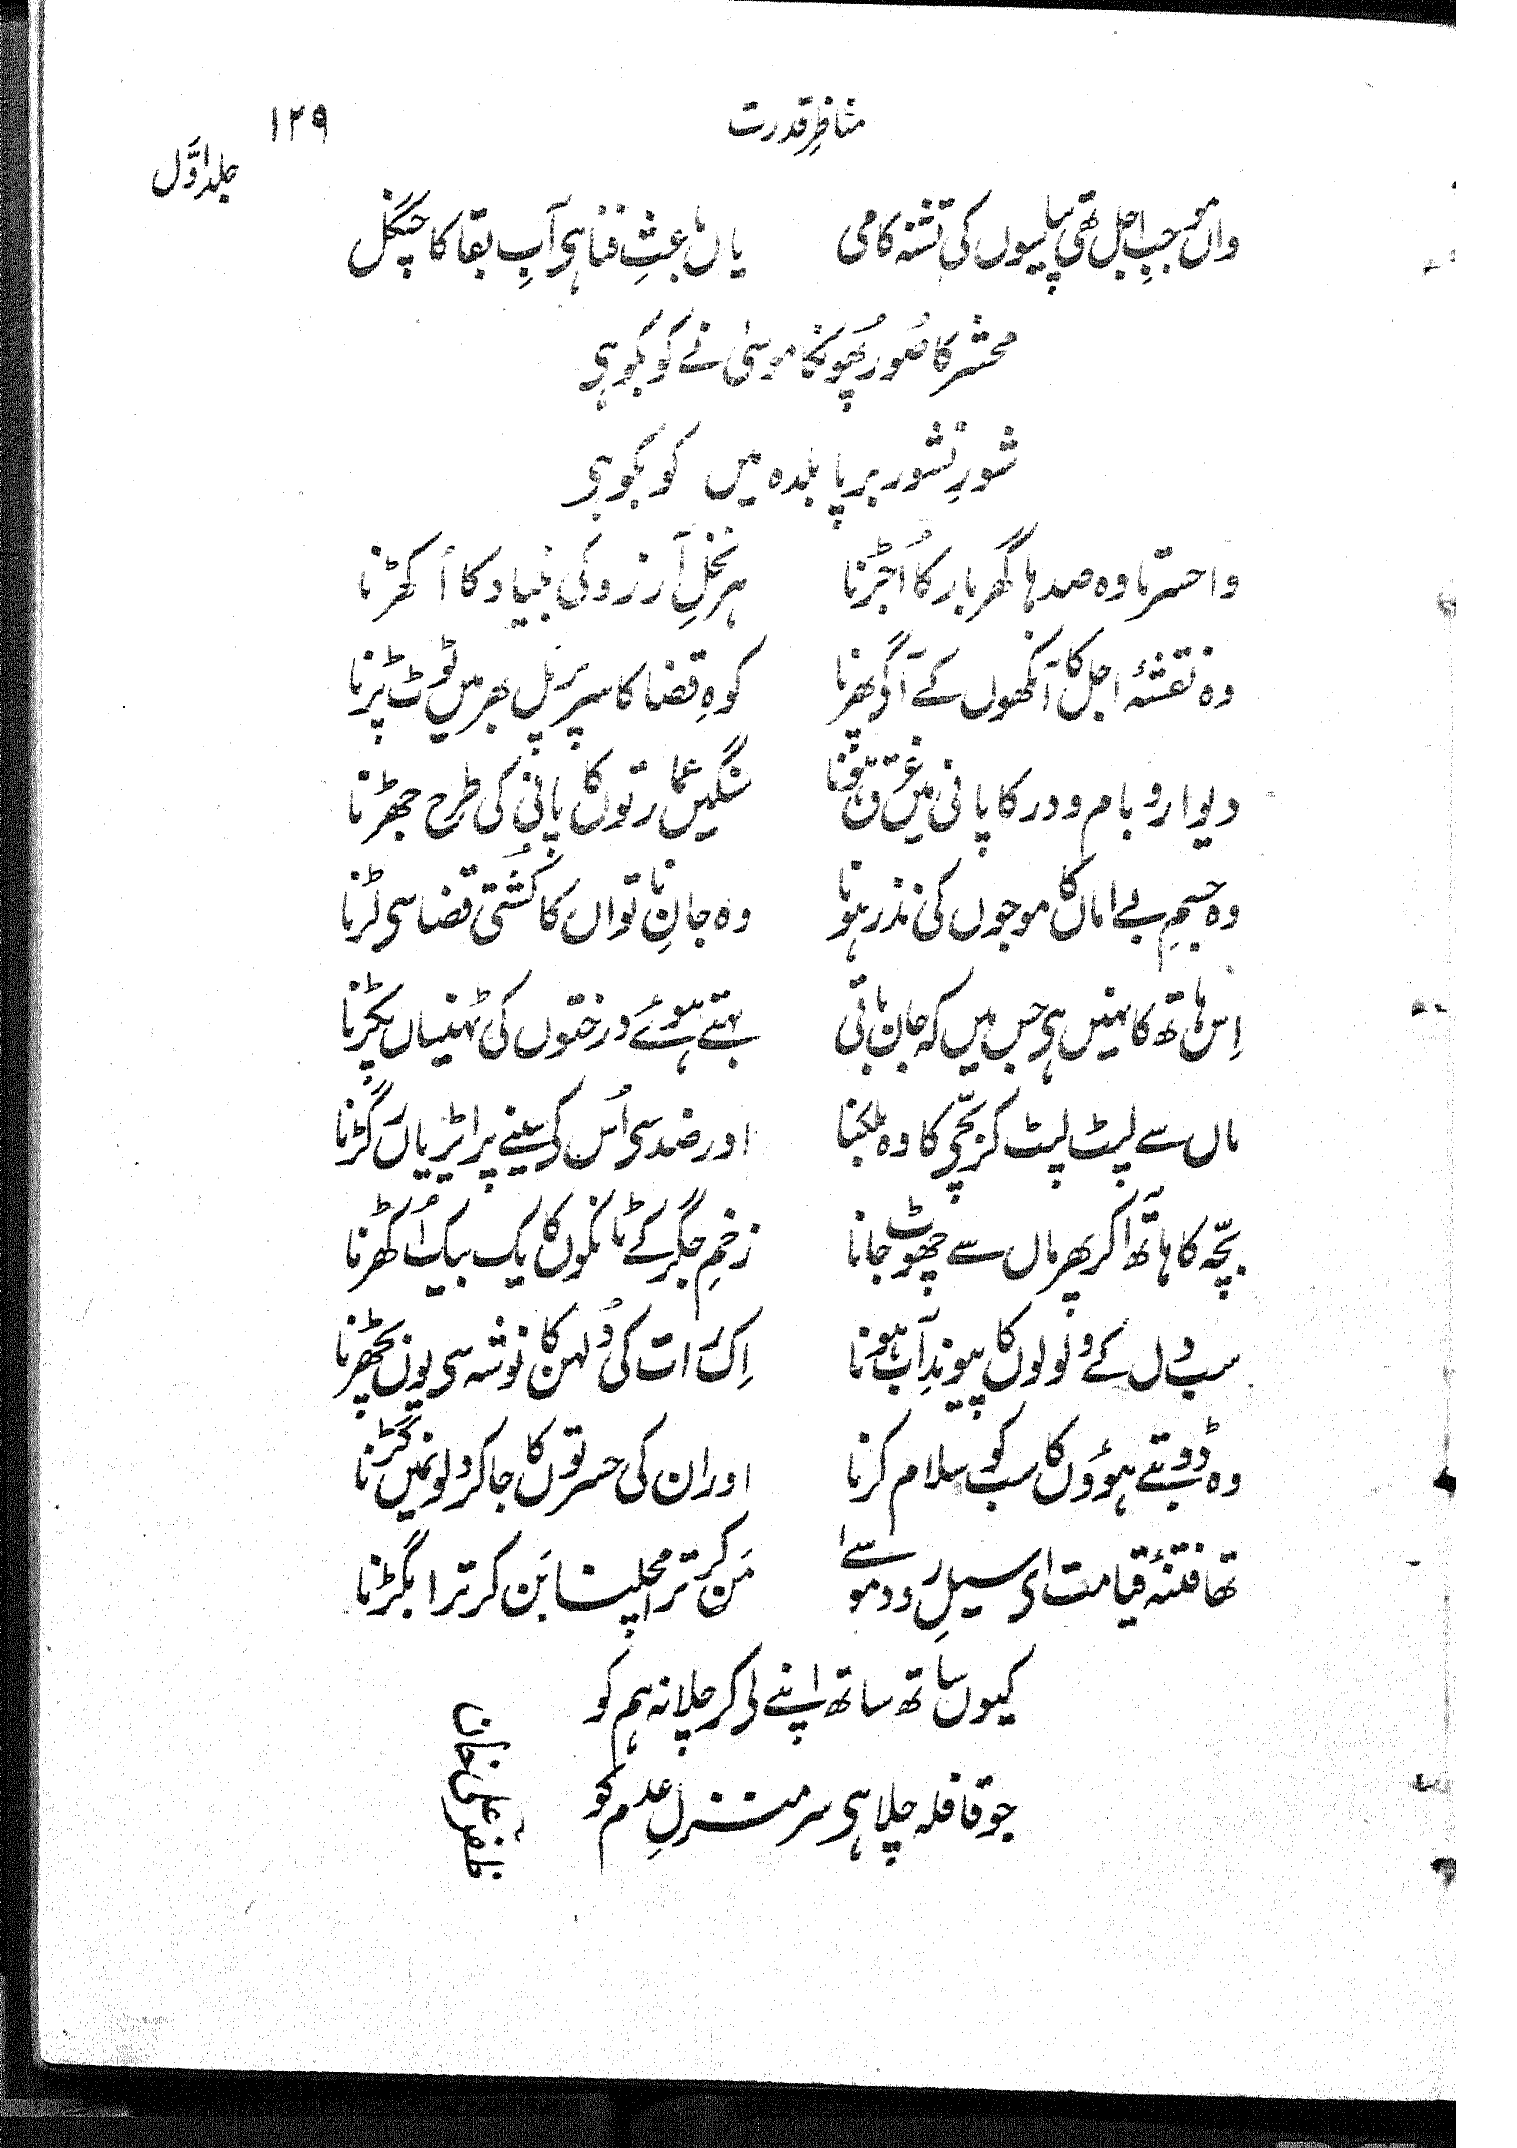 مناظرِ قدرت
۱۲۹
جلد اوّل
واں موجبِ اجل تھی پیاسوں کی تشنہ کامی
یاں باعثِ فنا ہی آبِ بقا کا چنگل
محشر کا صُور پھُونکا موسیٰ نے کو بکو ہی
شورِ نشور برپا بلدہ میں کو بکو ہی
واحسرتا وہ صدہا گھر بار کا اُجڑنا
ہر نخلِ آرزو کی بنیاد کا اُکھڑنا
وہ نقشۂ اجل کا آنکھوں کے آگے پھرنا
کوہِ قضا کا سر پر پل بھر میں ٹوٹ پڑنا
دیوار و بام و در کا پانی میں غرق ہونا
سنگیں عمارتوں کا پانی کی طرح جھڑنا
وہ جسمِ بے اماں کا موجوں کی نذر ہونا
وہ جانِ ناتواں کا کُشتی قضا سی لڑنا
اِس ہاتھ کا نہیں ہی جس میں کہ جان باقی
بہتے ہوئے درختوں کی ٹہنیاں پکڑنا
ماں سے لپٹ لپٹ کر بچّے کا وہ بلکنا
اور ضد سی اُس کی سینے پر ایڑیاں رگڑنا
بچّہ کا ہاتھ آکر پھر ماں سے چھوٹ جانا
زخمِ جگر کے ٹانکوں کا یک بیک اُکھڑنا
سب دل کے ولولوں کا پیوندِ آب ہونا
اِک رات کی دُلہن کا نوشہ سی یوں بچھڑنا
وہ ڈوبتے ہوؤں کا سب کو سلام کرنا
اور ان کی حسرتوں کا جا کر دلونمیں گڑنا
تھا فتنۂ قیامت ای سیلِ رود موسے
مَن کر ترا مچلنا بَن کر ترا بگڑنا
کیوں ساتھ ساتھ اپنے لی کر چلا نہ ہم کو
جو قافلہ چلا ہی سر منزلِ عدم کو
ظفر علی خان